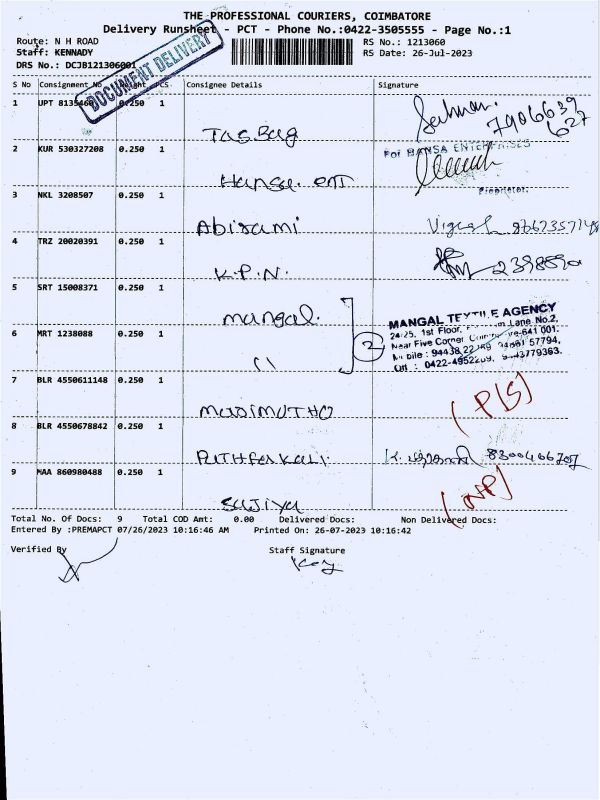 THE PROFESSIONAL COURIERS, COIMBATORE
Delivery Runsheet - PCT - Phone No.:0422-3505555 - Page No.:1
Route: N H ROAD
RS No.: 1213060
Staff: KENNADY
RS Date: 26-Jul-2023
DRS No.: DCJB121306001
DOCUMENT DELIVERY
S No Consignment No Weight PCS Consignee Details Signature
1 UPT 8135460 0.250 1
Tas Bag
7906639
627
2 KUR 530327208 0.250 1
For HANSA ENTERPRISES
Hansa. ent
Proprietor.
3 NKL 3208507 0.250 1
Abirami
4 TRZ 20020391 0.250 1
K.P.N.
5 SRT 15008371 0.250 1
Mangal.
2
MANGAL TEXTILE AGENCY
24-25, 1st Floor, Lane No.2,
Near Five Corner 641 001.
Mobile : 94438 57794,
Off : 0422-4952 43779363.
6 MRT 1238088 0.250 1
11
7 BLR 4550611148 0.250 1
(P/S)
8 BLR 4550678842 0.250 1
9 MAA 860980488 0.250 1
Sajiya
Total No. Of Docs: 9 Total COD Amt: 0.00 Delivered Docs: Non Delivered Docs:
Entered By :PREMAPCT 07/26/2023 10:16:46 AM Printed On: 26-07-2023 10:16:42
Verified By
Staff Signature